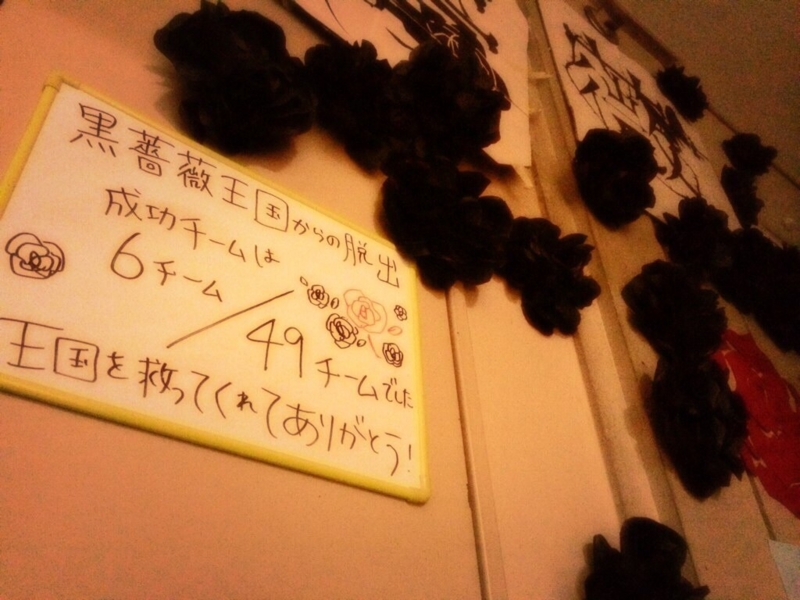 黒薔薇王国からの脱出
成功チームは
6チーム
49チームでした
王国を救ってくれてありがとう!